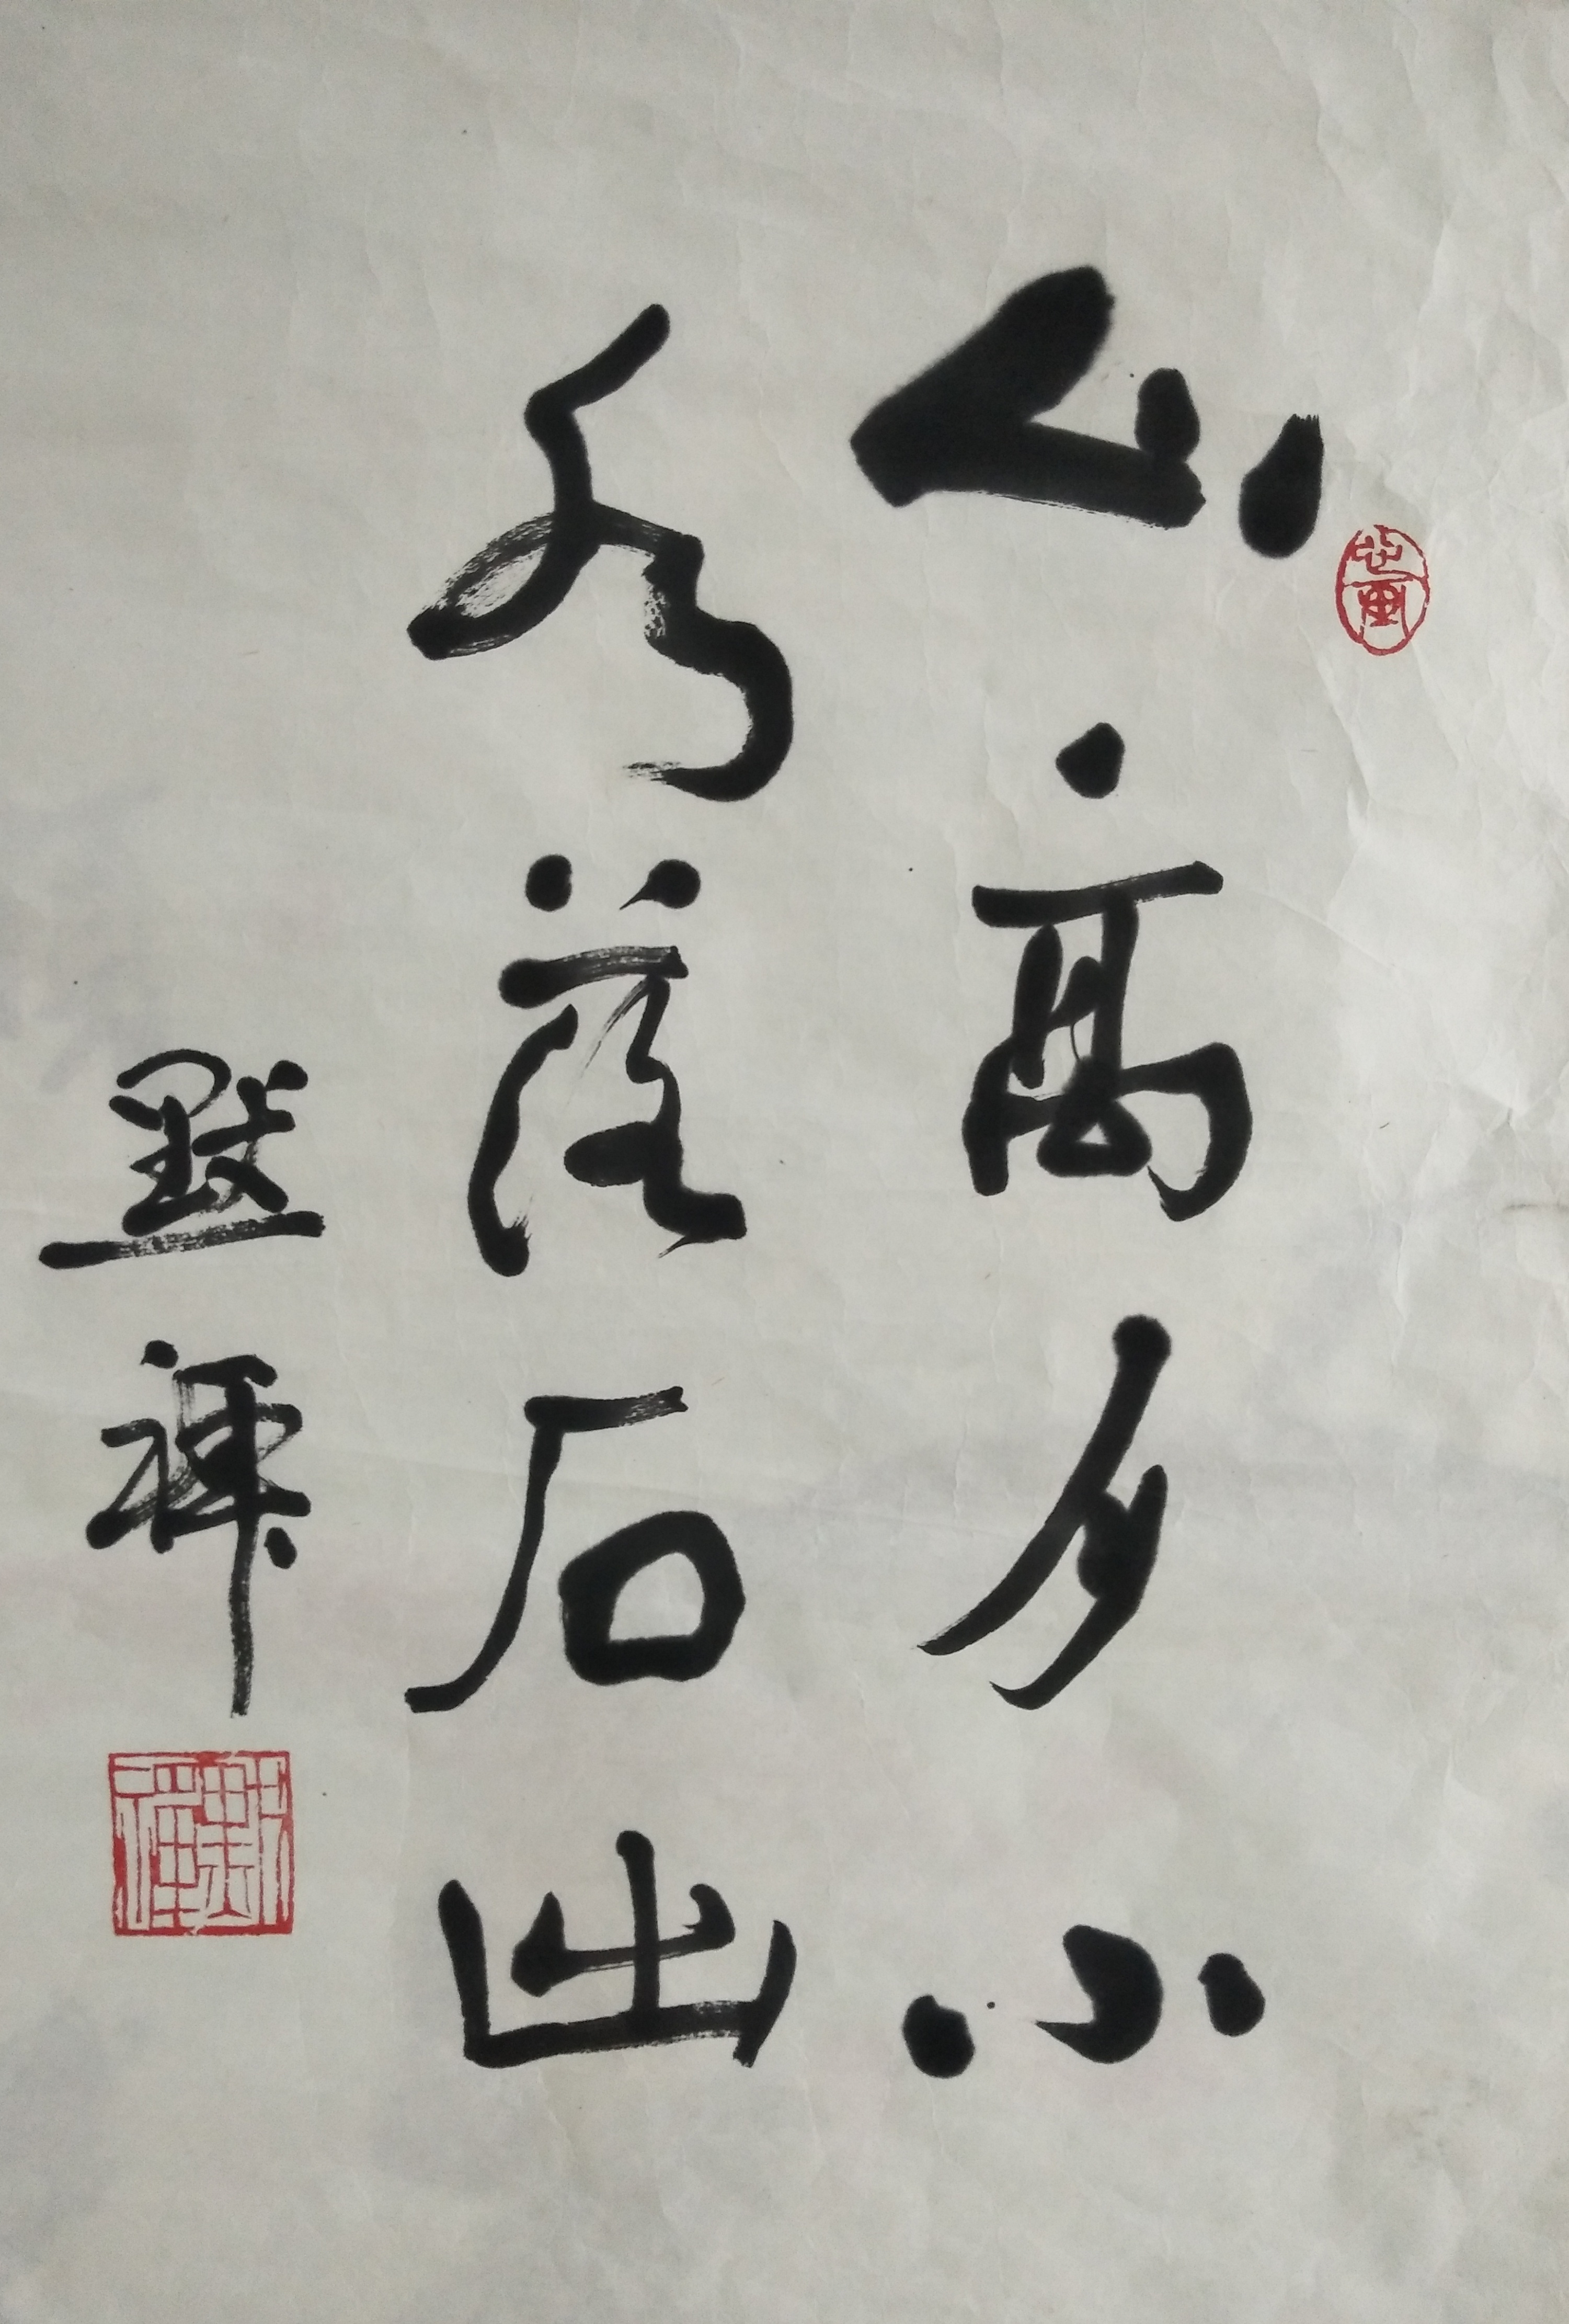 山高月小
水落石出
默禅